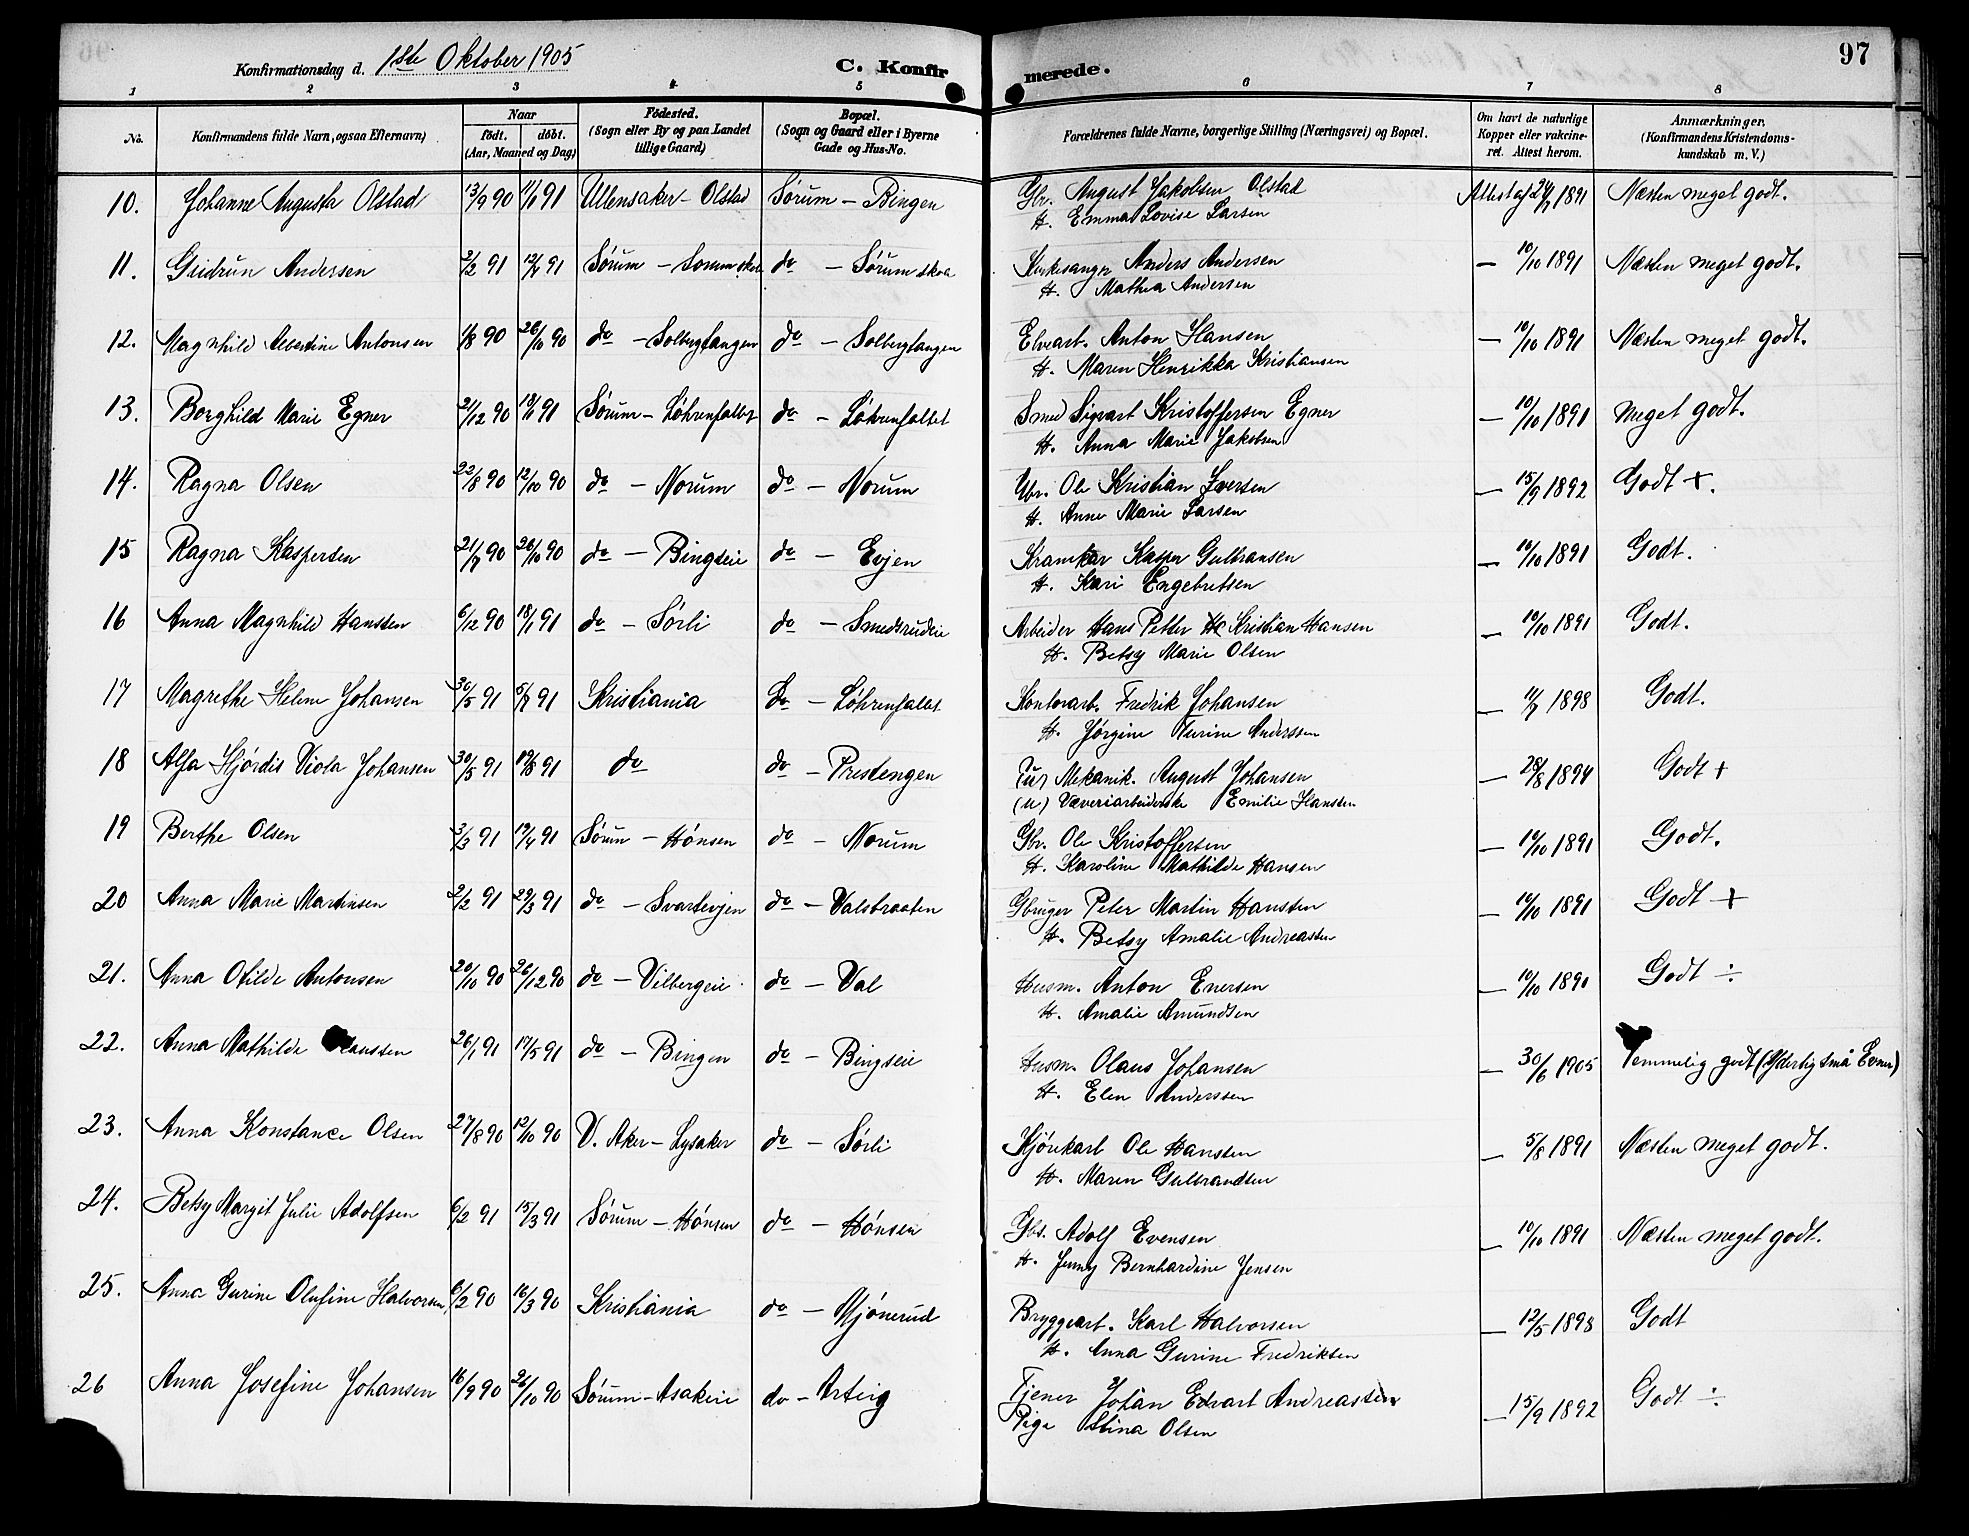 Konfirmationsdag d. 1ste Oktober 1905
C. Konfirmerede.
97
1 2 3 4 5 6 7 8
No. Konfirmandens fulde Navn, ogsaa Efternavn) Naar født. døbt. (Aar, Maaned og Dag) Fødested. (Sogn eller By og paa Landet tillige Gaard) Bopæl. (Sogn og Gaard eller i Byerne Gade og Hus-No. Forældrenes fulde Navne, borgerlige Stilling (Næringsvei) og Bopæl. Om havt de naturlige Kopper eller vakcineret. Attest herom. Anmærkninger. (Konfirmandens Kristendomskundskab m. V.)
10. Johanne Augusta Olstad 13/9 90 11/1 91 Ullensaker - Olstad Sørum - Bingen Gbr. August Jakobsen Olstad 1891 Næsten meget godt.
H. Emma Lovise Larsen
11. Gudrun Andersen 2/2 91 12/4 91 Sørum - do - Sørum skoa Kirkesanger Anders Andersen — 10/10 1891 Næsten meget godt.
H. Mathea Andersen
12. Magnhild Albertine Antonsen 1/8 90 26/10 90 do - Solbergtangen do - Solbergtangen Anton Hansen — 10/10 1891 Næsten meget godt.
H. Maren Henrikka Kristiansen
13. Borghild Marie Egner 21/12 90 91 Sørum - Løhrenfallet do - Løhrenfaltet Smed Sigvart Kristoffersen Egner — 10/10 1891 meget godt.
H. Anna Marie Jakobsen
14. Ragna Olsen 22/8 90 12/10 90 do - Norum do - Norum Gbr. Ole Kristian Iversen — 15/9 1892 Godt +.
H. Anne Marie Larsen
15 Ragna Kaspersen 21/7 90 26/10 90 do - Bingseie do - Evjen Kasper Gulbransen — 10/10 1891 Godt.
H. Kari Engebretsen
16 Anna Magnhild Hanssen 6/12 90 18/1 91 do - Sørli do - Smedsrudeie Arbeider Hans Petter Kristian Hansen — 10/10 1891 Godt.
H. Betsy Marie Olsen
17 Magrethe Helene Johansen 30/5 91 5/7 91 Kristiania Do - Løhrenfallet Kontorarb. Fredrik Johansen — 1898 Godt.
H. Jørgine Turine Anderssen
18 Alfa Hjørdis Viola Johansen 30/5 91 19/8 91 do do - Prestengen Mekanik. August Johansen — 28/8 1894 Godt +
(u) Væveriarbeiderske Emilie Hanssen
19 Berthe Olsen 3/3 91 19/4 91 Sørum - Hønsen do - Norum Gbr. Ole Kristoffersen — 10/10 1891 Godt.
H. Karoline Mathilde Hansen
20 Anna Marie Martinsen 2/2 91 29/3 91 do - Svartevjen do - Valstraaten Gbruger Peter Martin Hanssen — 10/10 1891 Godt +
H. Betsy Amalie Andreassen
21. Anna Otilde Antonsen 20/10 90 26/12 90 do - Vilbergeie do - Val Husm. Anton Enersen — 10/10 1891 Godt ÷
H. Amalie Amundsen
22. Anna Mathilde 26/1 91 17/5 91 do - Bingen do - Bingseie Husm. Olaus Johansen — 30/6 1905 Temmelig godt (Yderlig små Evner)
H. Elen Anderssen
23. Anna Konstance Olsen 27/8 90 12/10 90 V. Aker - Lysaker do - Sørli Kjørekarl Ole Hanssen — 5/8 1891 Næsten meget godt.
H. Maren Gulbrandsen
24. Betsy Margit Julie Adolfsen 6/2 91 15/3 91 Sørum - Hønsen do - Hønsen Gbr. Adolf Evensen — 10/10 1891 Næsten meget godt.
H. Jenny Bernhardine Jensen
25. Anna Gurine Olufine Halvorsen, 6/2 90 16/3 90 Kristiania do - Mjønerud Bryggeart. Karl Halvorsen — 12/5 1898 Godt
H. Anna Gurine Fredriksen
26 Anna Josefine Johansen 16/9 90 26/10 90 Sørum - Asakeie do - Arteig Tjener Johan Edvart Andreassen — 15/9 1892 Godt ÷
Pige Stina Olsen